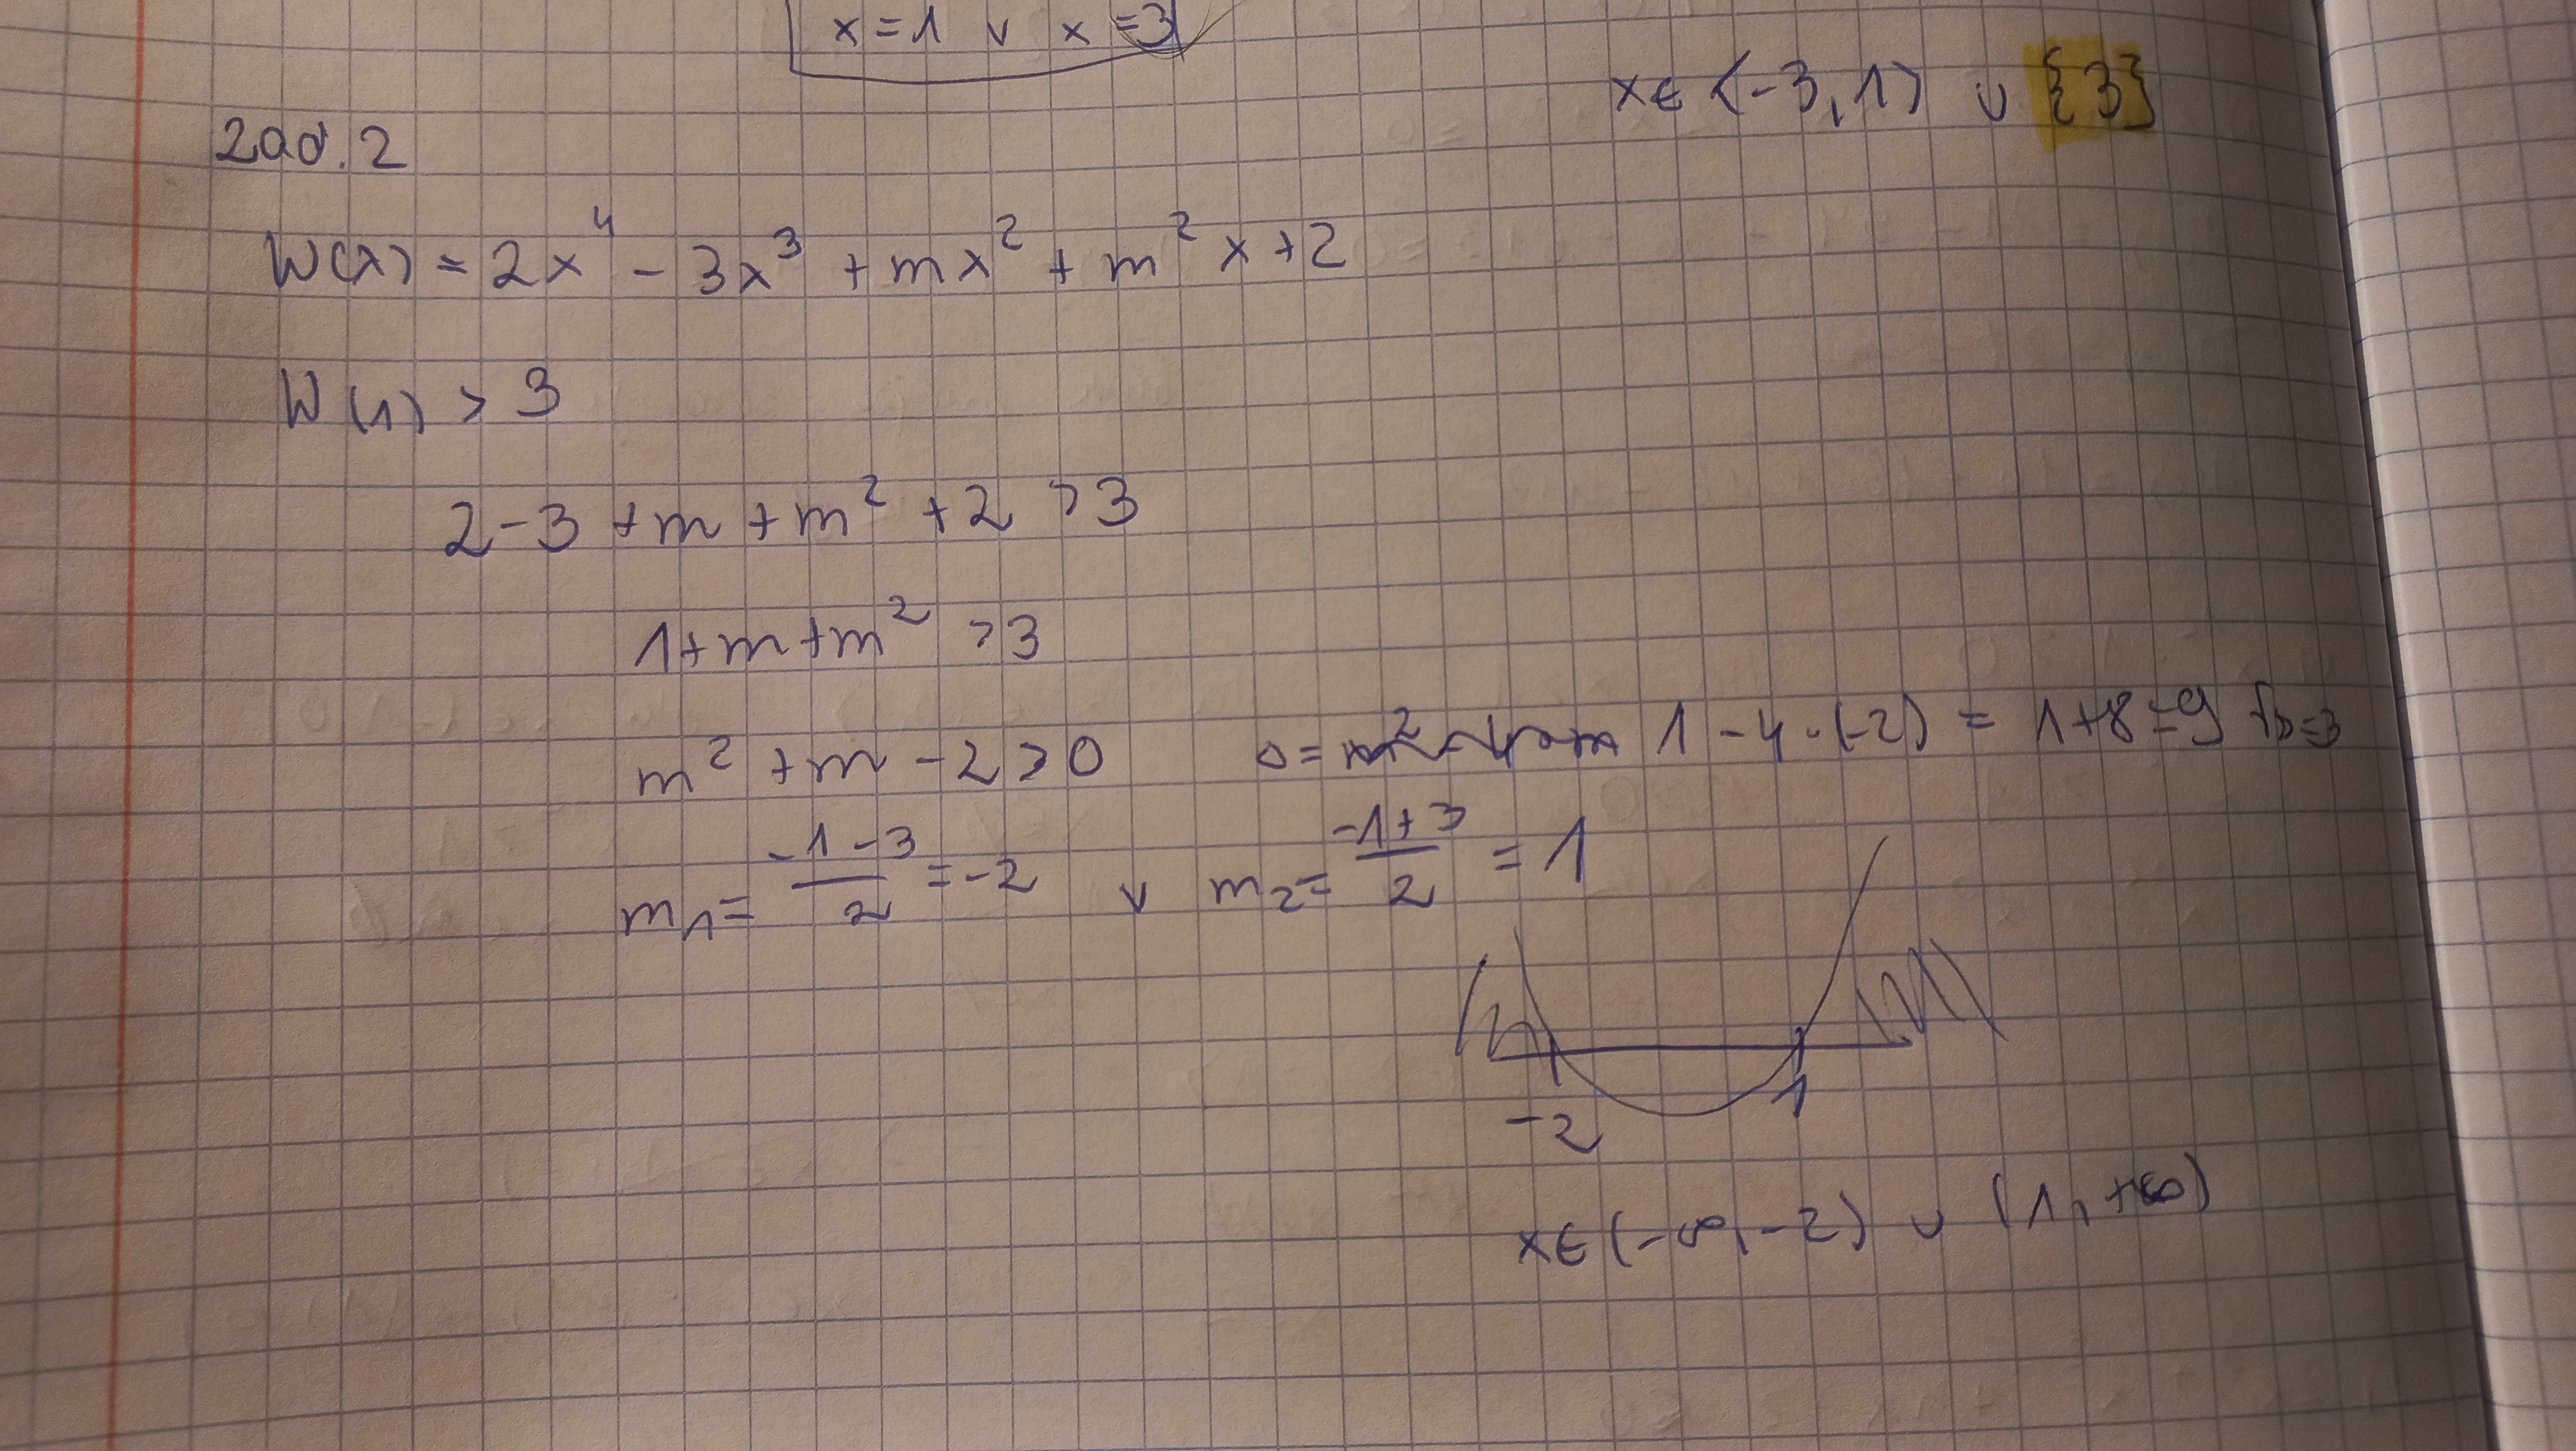 x=1 v x=3
x∈⟨-3,1⟩ ∪ {3}
Zad. 2
W(x) = 2x⁴ - 3x³ + mx² + m²x+2
W(1) > 3
2-3 +m +m² +2 >3
1+m+m² >3
m² +m -2>0 Δ= 1-4·(-2) = 1+8=9 √Δ=3
m₁= \frac{-1-3}{2} =-2 v m₂= \frac{-1+3}{2} =1
-2 1
x∈(-∞,-2) ∪ (1,+∞)